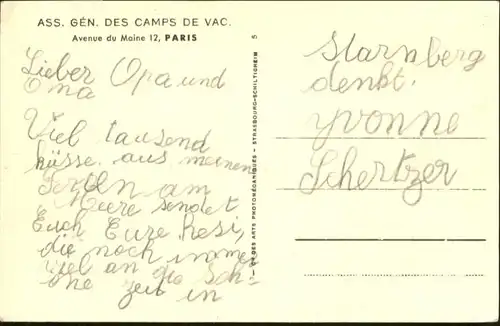 ASS. GÉN. DES CAMPS DE VAC.
Avenue du Maine 12, PARIS
Lieber Opa und
Oma
Viel tausend
küsse aus meinen
Ferien am
Meere sendet
Euch Eure Resi,
die noch immer
viel an die Sch-
öne Zeit in
5
DES ARTS PHOTOMÉCANIQUES - STRASBOURG-SCHILTIGHEIM
Starnberg
denkt.
Yvonne
Schertzer